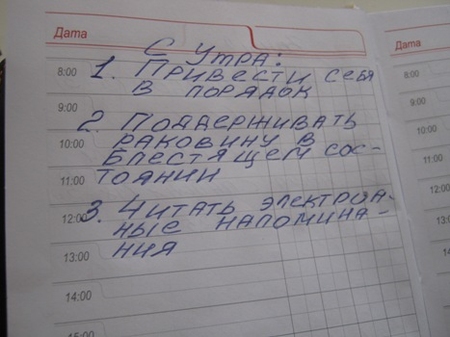 Дата
С УТРА:
8:00 1. ПРИВЕСТИ СЕБЯ
В ПОРЯДОК
9:00
2. ПОДДЕРЖИВАТЬ
10:00 РАКОВИНУ В
БЛЕСТЯЩЕМ СОС-
11:00 ТОЯНИИ
3. ЧИТАТЬ ЭЛЕКТРОН-
12:00 НЫЕ НАПОМИНА-
13:00 НИЯ
14:00
15:00
Дата
8:00
9:00
10:00
11:00